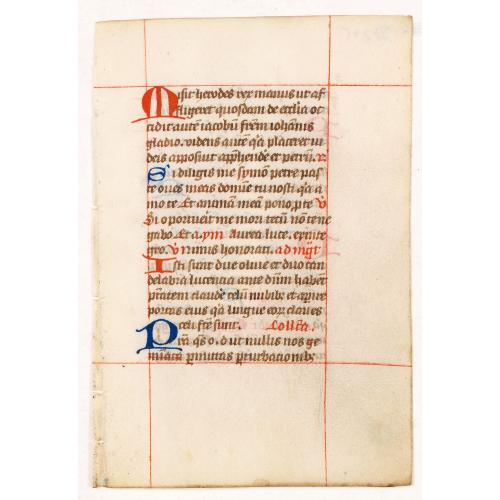 Misit herodes rex manus ut af
fligeret quosdam de ecclia oc
cidit autē iacobū frēm iohānis
gladio. videns autē qa placeret iu
deis apposuit app̄hende et petrū. R
Si diligis me symon petre pas
ce oues meas domine tu nosti qa a
mo te Et animam meā pono p te V
Si oportuerit me mori tecū non te ne
gabo Et a. ym Aurea luce. egrege
Vi nimis honorati. ad mgt
Isti sunt due oliue et duo can
delabra lucencia ante dnm habent
ptatem claude celū nubibz et aperire
portas eius qa lingue eor claues
celi fce sunt. Collcta.
Pra qs o. d ut nullis nos
pmittas pturbationibz